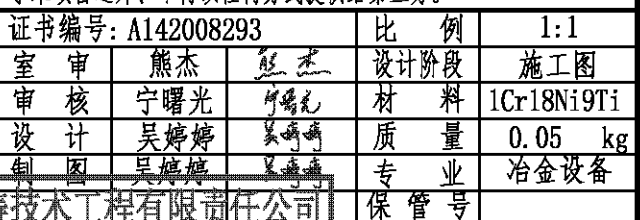 证书编号: A142008293 比 例 1:1
室 审 熊杰 熊杰 设计阶段 施工图
审 核 宁曙光 宁曙光 材 料 1Cr18Ni9Ti
设 计 吴婷婷 吴婷婷 质 量 0.05 kg
制 图 吴婷婷 吴婷婷 专 业 冶金设备
技术工程有限责任公司 保 管 号